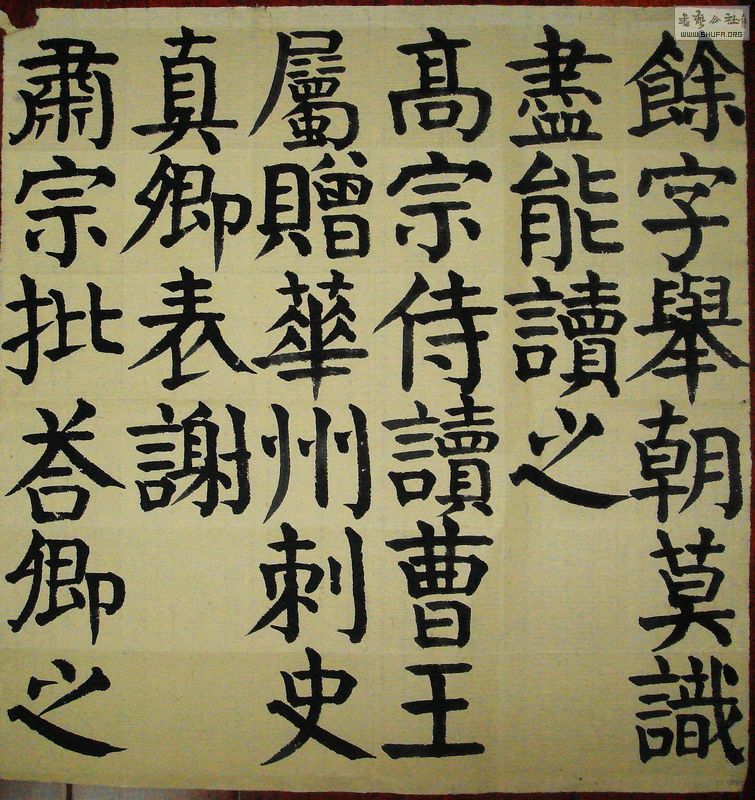 餘字舉朝莫識
盡能讀之
高宗侍讀曹王
屬贈華州刺史
真卿表謝
肅宗批荅卿之
書藝公社
WWW.SHUFA.ORG